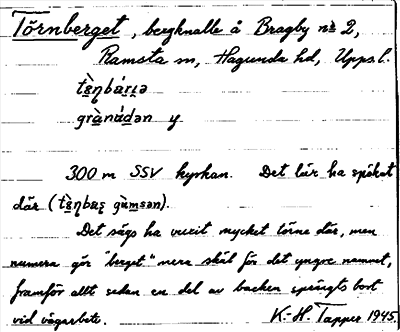 Törnberget, bergknalle å Bragby nr 2,
Ramsta sn, Hagunda hd, Upps.l.
tὲ̱ɳbárɩ̣ə
grànádən y
300 m SSV kyrkan. Det lär ha spökat
där (tὲ̱ɳbæ̱ʂ gùmsən).
Det sägs ha vuxit mycket törne där, men
numera gör "berget" mera skäl för det yngre namnet,
framför allt sedan en del av backen sprängts bort
vid vägarbete. K.-H. Tapper 1945.